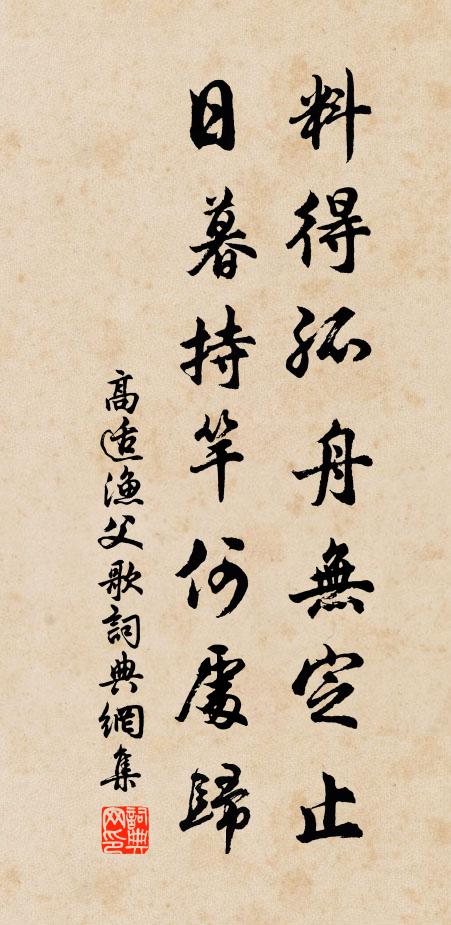 料得孤舟無定止
日暮持竿何處歸
高適漁父歌詞典網集
詞典網印